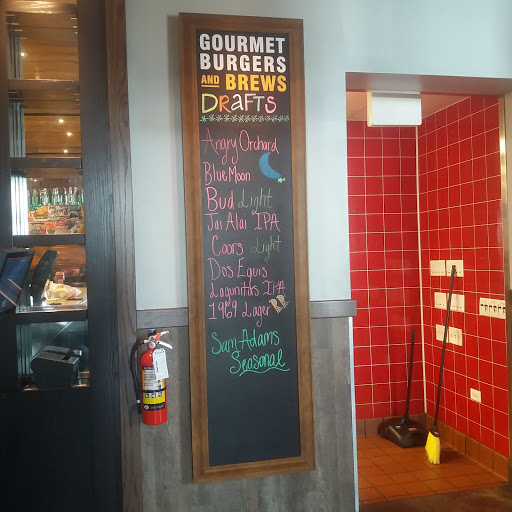 GOURMET
BURGERS
AND BREWS
DRAFTS
Angry Orchard
Blue Moon
Bud Light
Jai Alai IPA
Coors Light
Dos Equis
Lagunitas IPA
1969 Lager
Sam Adams
Seasonal